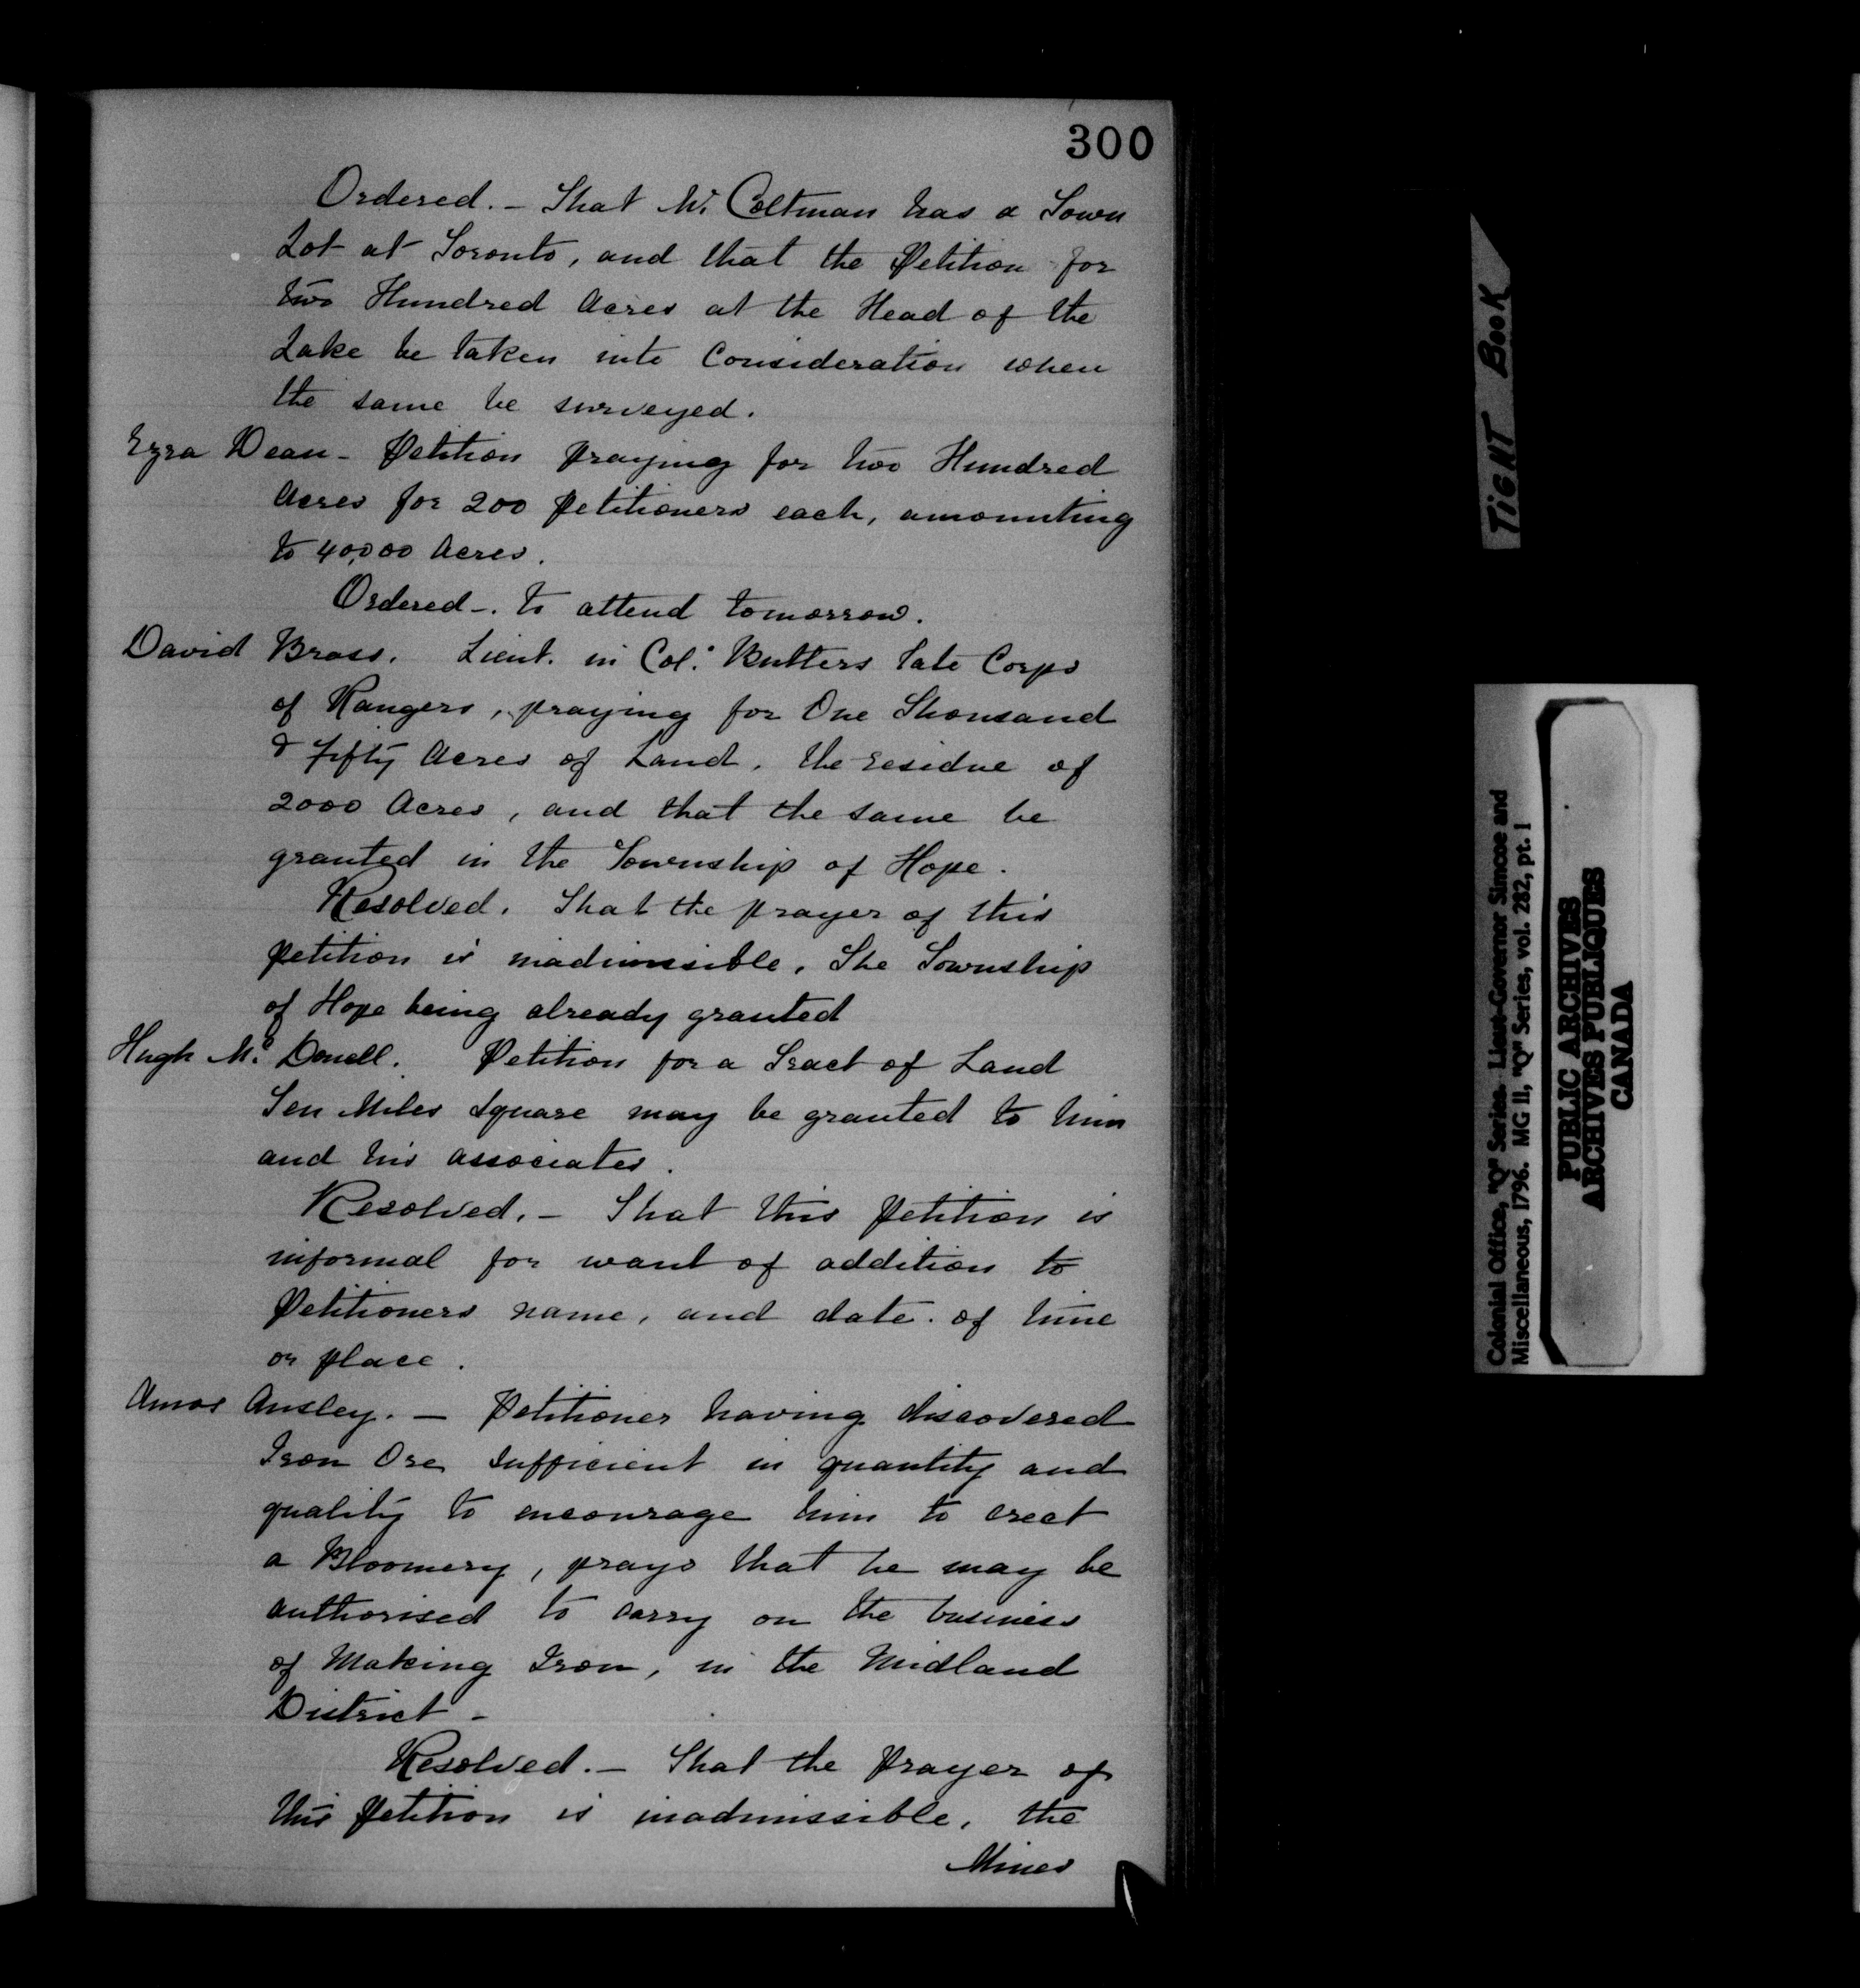 300
Ordered. - That Mr Coltman has a Town
Lot at Toronto, and that the Petition for
two Hundred Acres at the Head of the
Lake be taken into Consideration when
the same be surveyed.
Ezra Dean - Petition praying for two Hundred
Acres for 200 Petitioners each, amounting
to 40,000 Acres.
Ordered -. to attend tomorrow.
David Brass. Lieut. in Col: Butlers late Corps
of Rangers, praying for One Thousand
& fifty Acres of Land. the residue of
2000 Acres, and that the same be
granted in the Township of Hope.
Resolved. That the prayer of this
petition is inadmissible. The Township
of Hope being already granted
Hugh Mc Donell. Petition for a Tract of Land
Ten Miles Square may be granted to him
and his associates.
Resolved. - That this petition is
informal for want of addition to
Petitioners name, and date. of time
or place.
Amos Ansley. - Petitioner having discovered
Iron Ore sufficient in quantity and
quality to encourage him to erect
a Bloomery, prays that he may be
authorised to carry on the business
of Making Iron, in the Midland
District -
Resolved. - That the prayer of
this petition is inadmissible, the
Mines
TIGHT BOOK
Colonial Office, "Q" Series. Lieut-Governor Simcoe and
Miscellaneous, 1796. MG 11, "Q" Series, vol. 282, pt. 1
PUBLIC ARCHIVES
ARCHIVES PUBLIQUES
CANADA